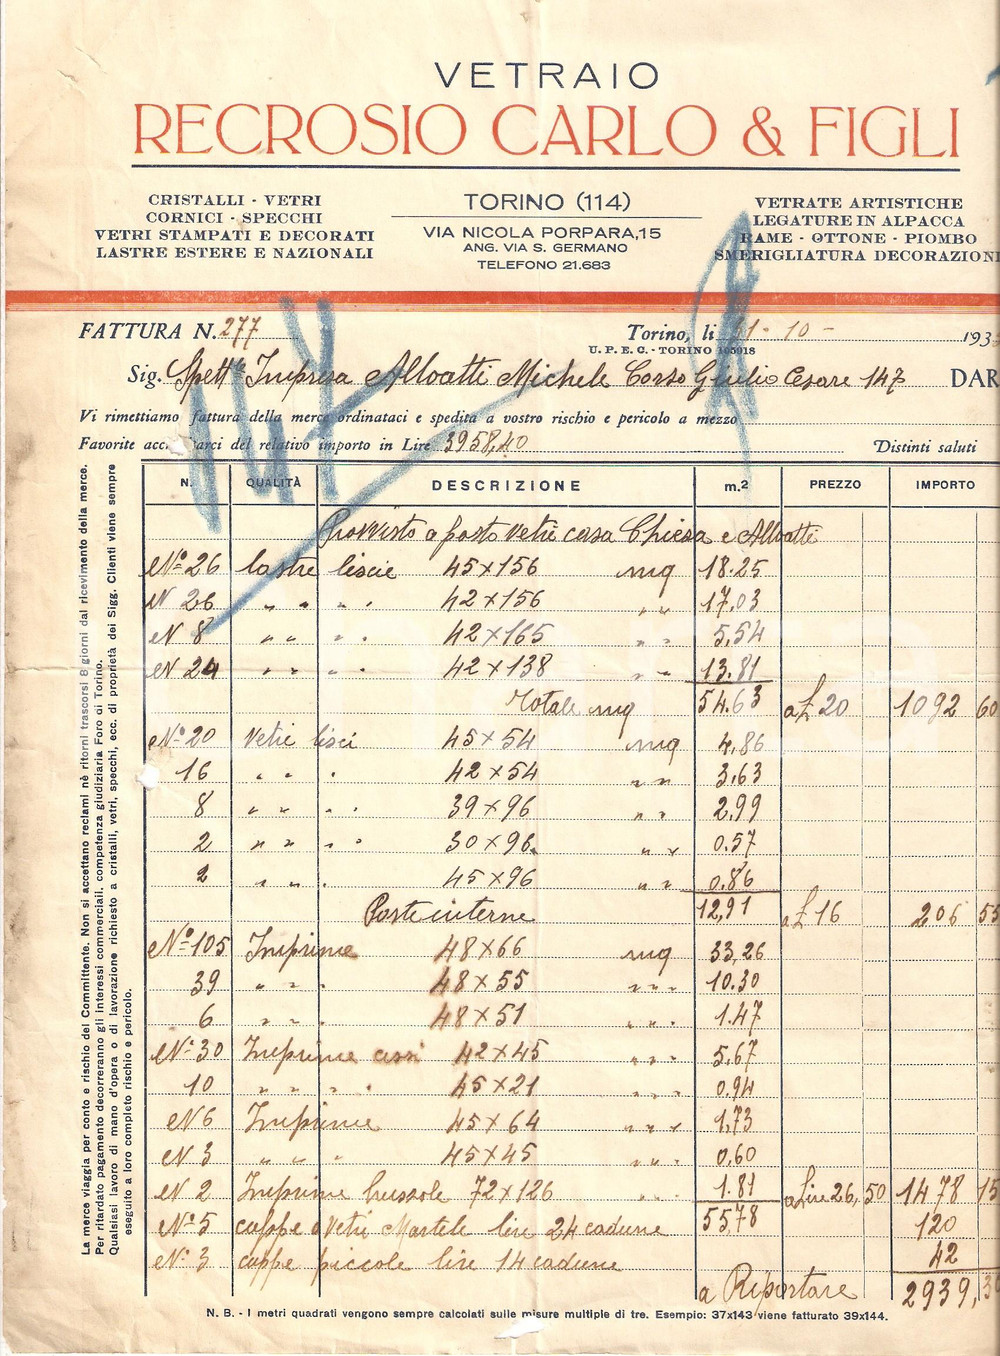 VETRAIO
RECROSIO CARLO & FIGLI
CRISTALLI - VETRI
CORNICI - SPECCHI
VETRI STAMPATI E DECORATI
LASTRE ESTERE E NAZIONALI
TORINO (114)
VIA NICOLA PORPARA, 15
ANG. VIA S. GERMANO
TELEFONO 21.683
VETRATE ARTISTICHE
LEGATURE IN ALPACCA
RAME - OTTONE - PIOMBO
SMERIGLIATURA DECORAZIONI
FATTURA N. 277
Torino, li 31-10- 193
U. P. E. C. - TORINO 105918
Sig. Spett Impresa Alloatti Michele Corso Giulio Cesare 147 DAR
Vi rimettiamo fattura della merce ordinataci e spedita a vostro rischio e pericolo a mezzo
Favorite acc darci del relativo importo in Lire 3958,40 Distinti saluti
N. QUALITÀ DESCRIZIONE m.² PREZZO IMPORTO
Provvisto a posto vetri casa Chiesa e Alloatti
N° 26 lastre liscie 45x156 mq 18.25
N 26 " " " " 42x156 " " 17,03
N 8 " " " " 42x165 " " 5,54
N 24 " " " " 42x138 " " 13.81
Totale mq 54.63 a £ 20 1092 60
N° 20 Vetri lisci 45x54 mq 4,86
16 " " " 42x54 " " 3,63
8 " " " " 39x96 " " 2,99
2 " " " " 30x96 " " 0.57
2 " " " 45x96 " " 0.86
Porte interne 12,91 a £ 16 206 55
N° 105 Imprime 48x66 mq 33,26
39 " " " 48x55 " " " 10.30
6 " " " 48x51 " " " 1.47
N° 30 Imprime 42x45 " " " 5,67
10 " " " " 45x21 " " " 0,94
N 6 Imprime 45x64 " " " 1,73
N 3 " " " 45x45 " " " 0,60
N 2 Imprime bussole 72x126 " " 1.81 a Lire 26,50 1478 15
N° 5 cappe a Vetri Martelé lire 24 cadune 55,78 120
N° 3 cappe piccole lire 14 cadune 42
a Riportare 2939,30
N. B. - I metri quadrati vengono sempre calcolati sulle misure multiple di tre. Esempio: 37x143 viene fatturato 39x144.
La merce viaggia per conto e rischio del Committente. Non si accettano reclami nè ritorni trascorsi 8 giorni dal ricevimento della merce.
Per ritardato pagamento decorreranno gli interessi commerciali. competenza giudiziaria Foro di Torino.
Qualsiasi lavoro di mano d'opera o di lavorazione richiesto a cristalli, vetri, specchi, ecc. di proprietà dei Sigg. Clienti viene sempre
eseguito a loro completo rischio e pericolo.